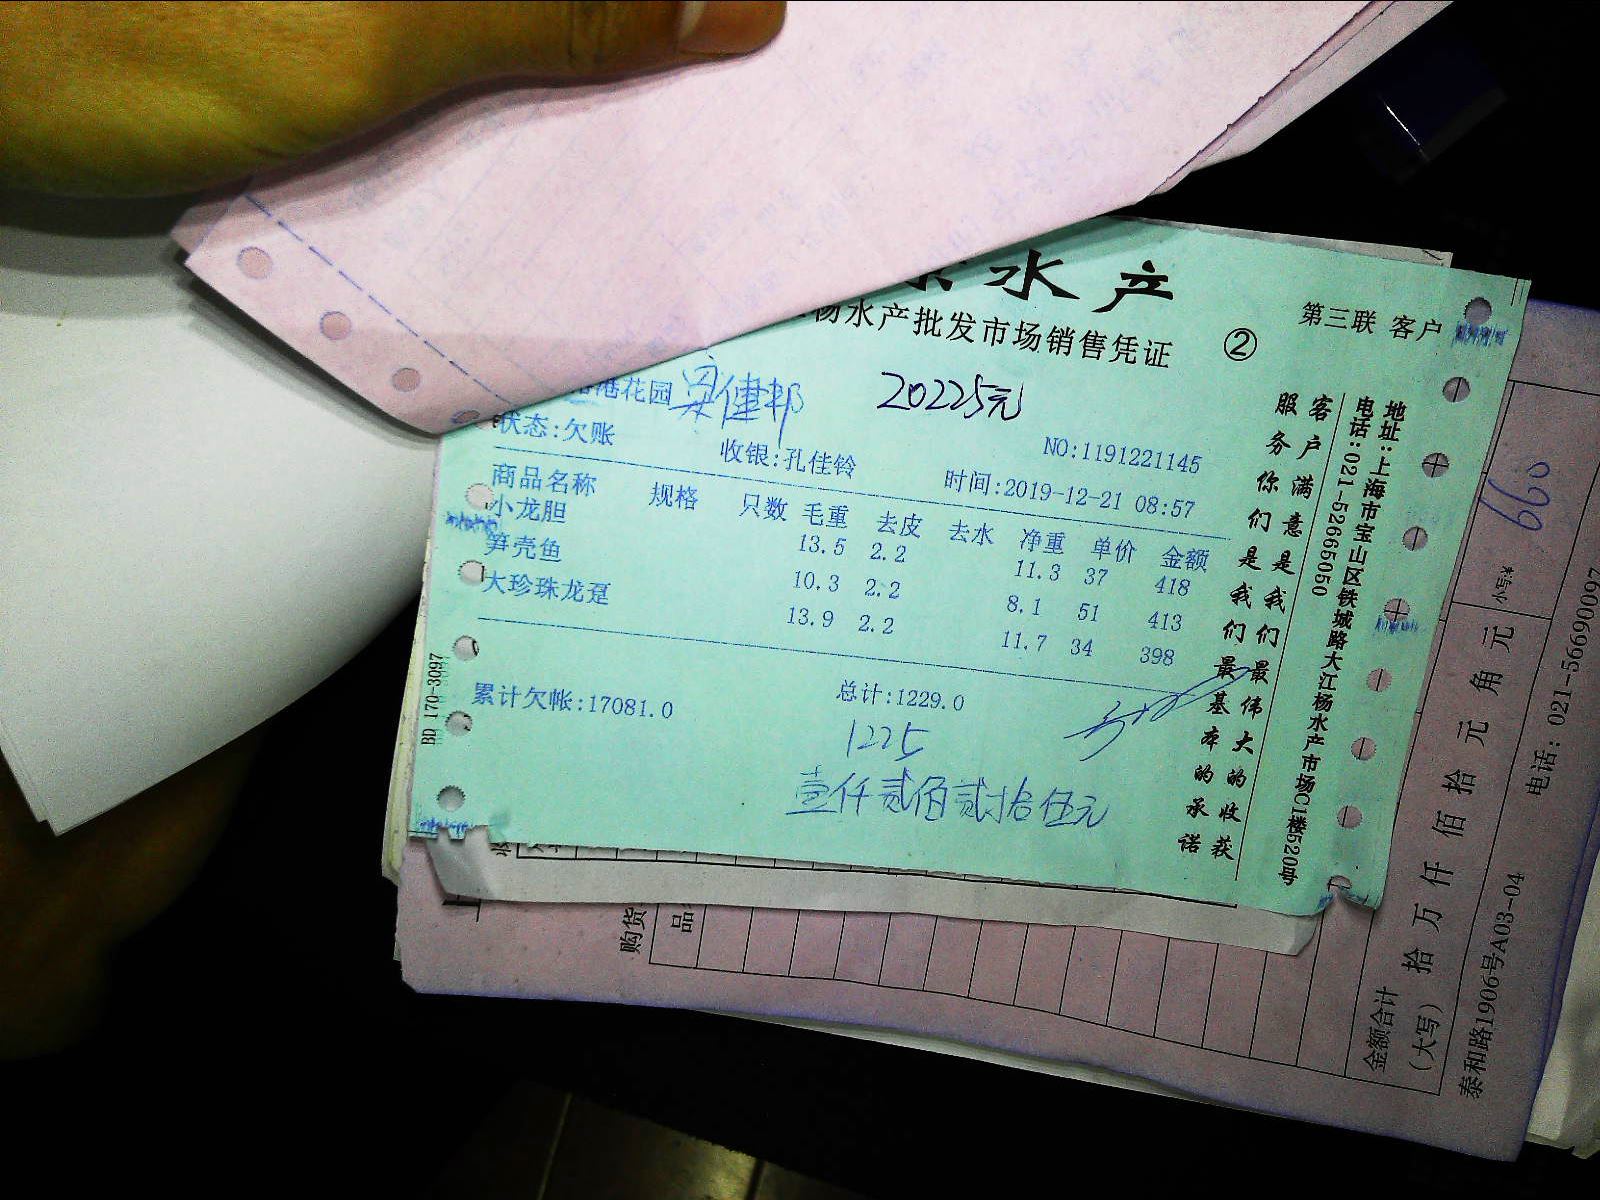 水产
杨水产批发市场销售凭证 ② 第三联 客户
港花园 梁健邦 20225元
状态:欠账 收银:孔佳铃 NO:1191221145
时间:2019-12-21 08:57
商品名称 规格 只数 毛重 去皮 去水 净重 单价 金额
小龙胆 13.5 2.2 11.3 37 418
笋壳鱼 10.3 2.2 8.1 51 413
大珍珠龙趸 13.9 2.2 11.7 34 398
累计欠帐:17081.0 总计:1229.0
1225
壹仟贰佰贰拾伍元
BD 170-3097
客户满意是我们最伟大的收获
服务你们是我们最基本的承诺
地址:上海市宝山区铁城路大江杨水产市场C1楼520号
电话:021-52665050
购货
品
金额合计
(大写) 拾 万 仟 佰 拾 元 角 元
小写¥ 660
泰和路1906号A03-04 电话: 021-56690097